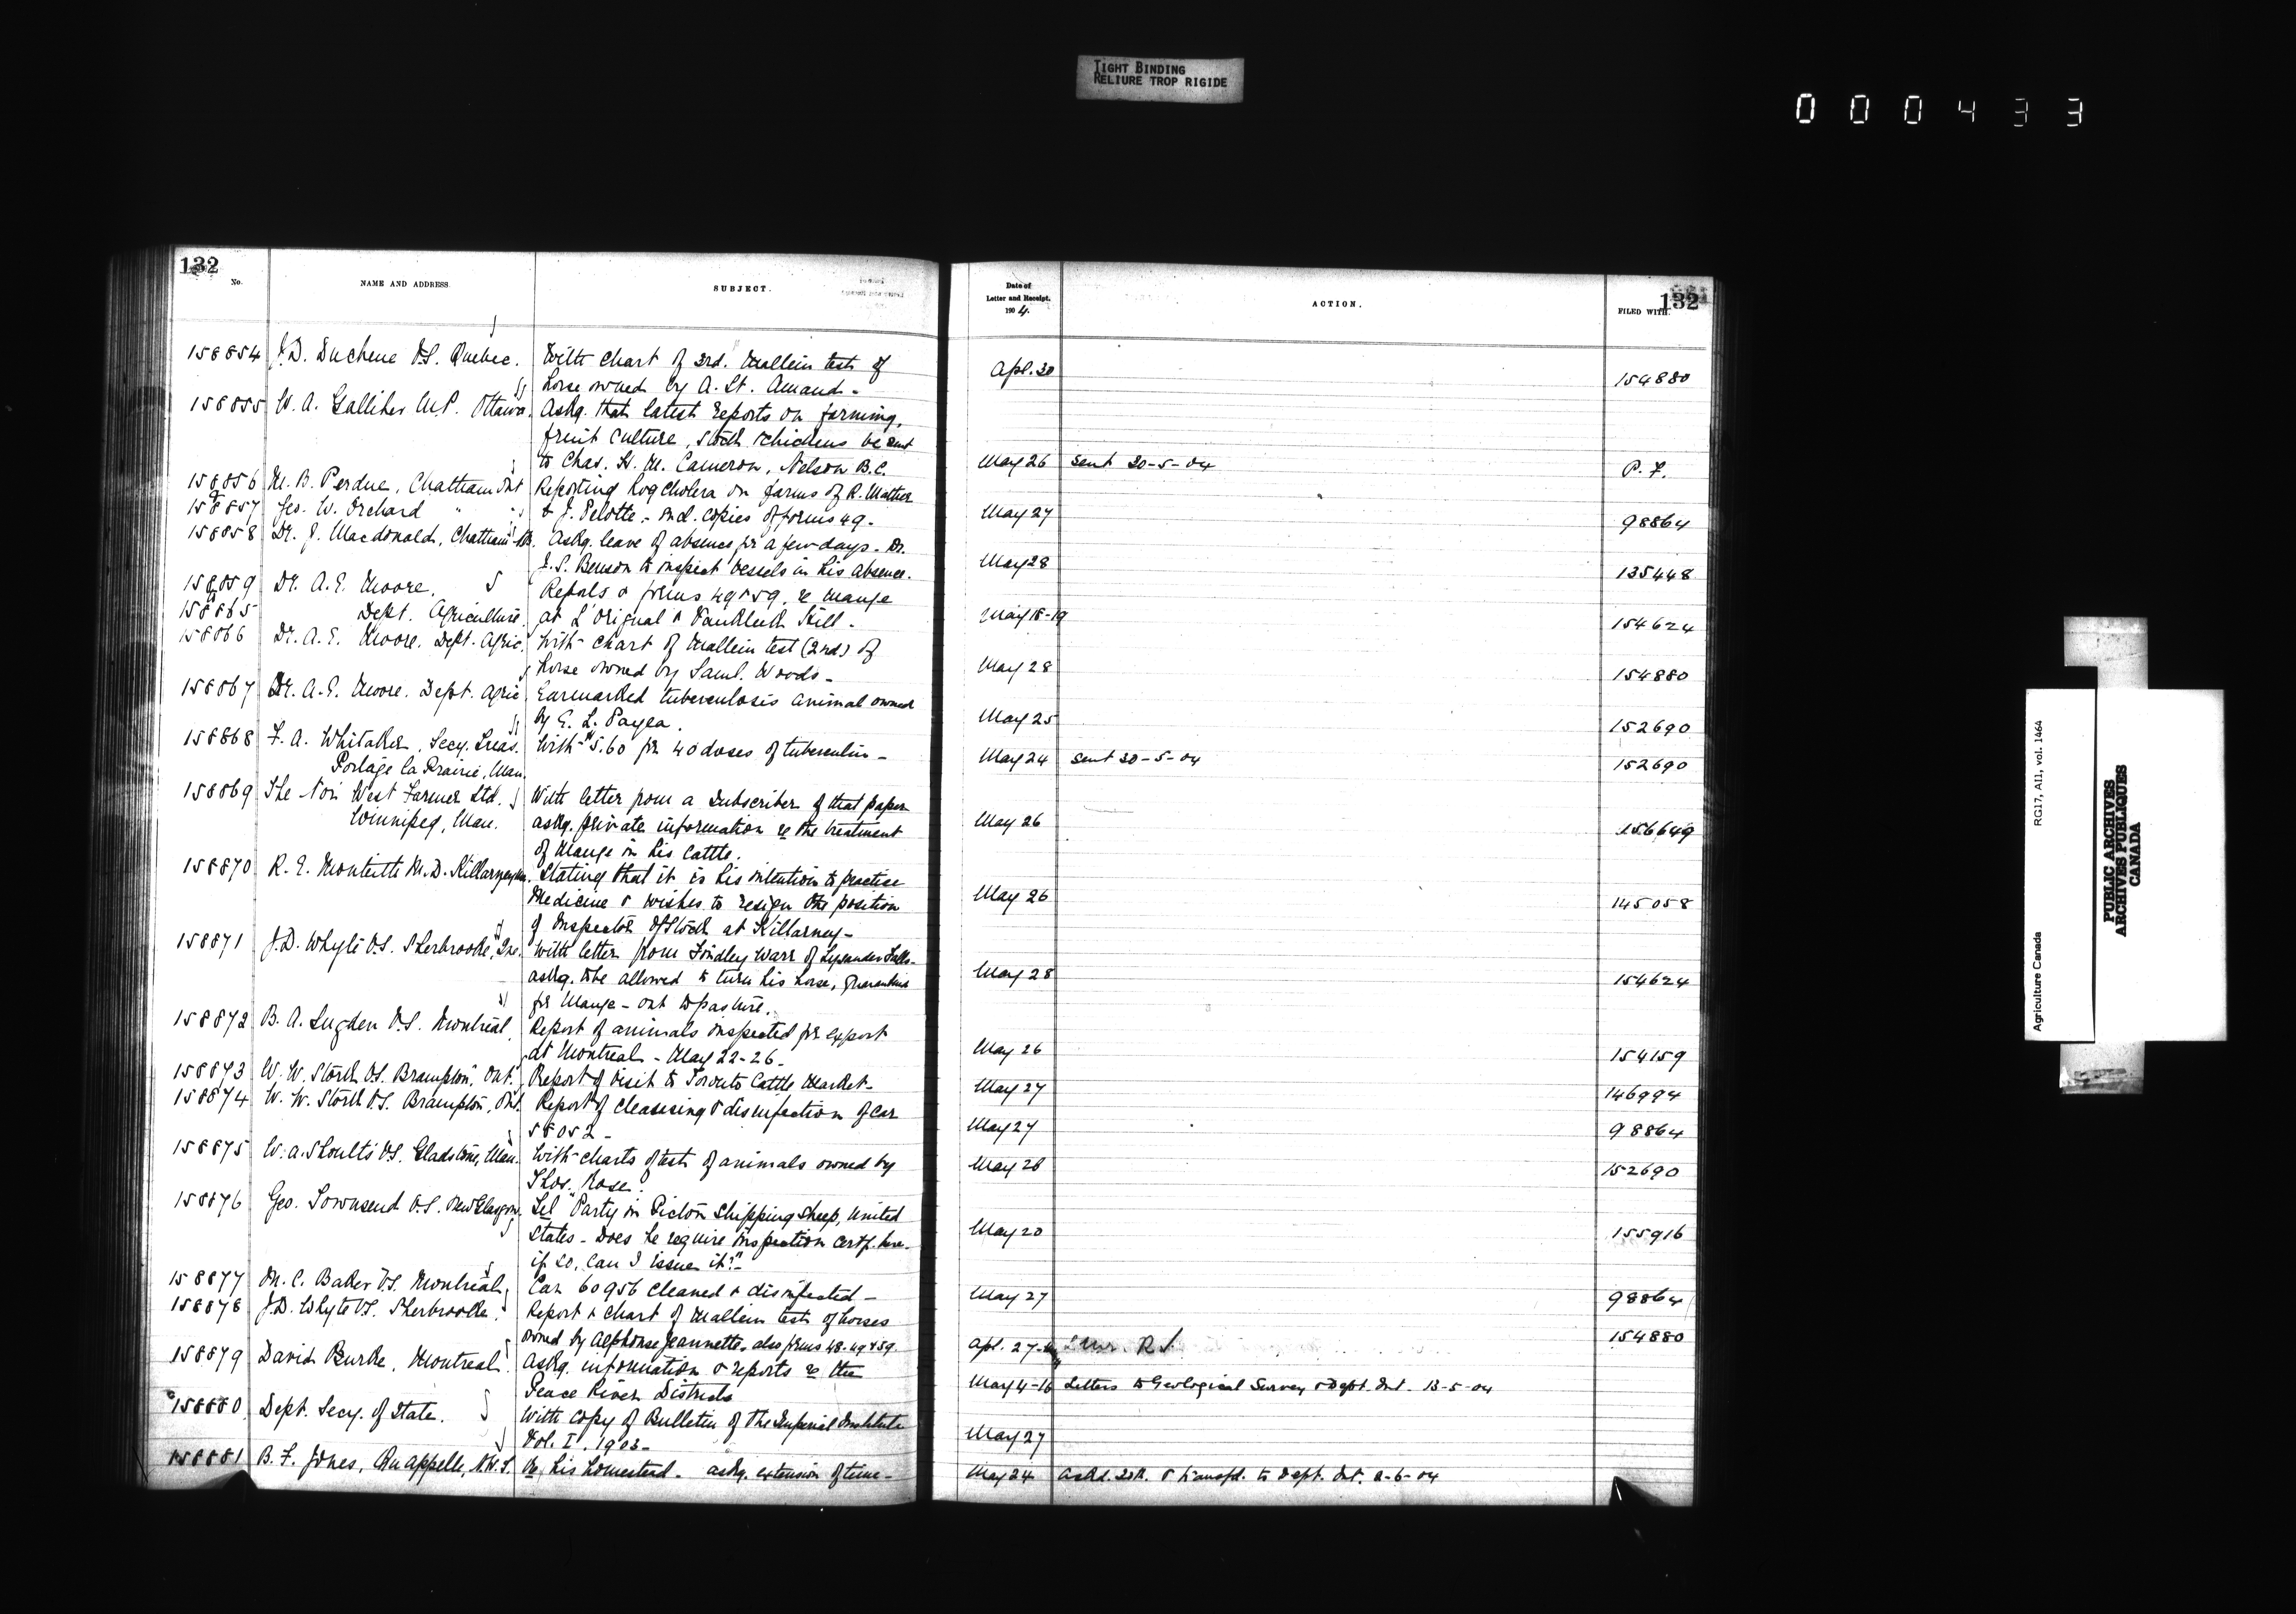 TIGHT BINDING
RELIURE TROP RIGIDE
000433
132
No.
NAME AND ADDRESS.
SUBJECT.
Date of
Letter and Receipt.
1904.
ACTION.
132
FILED WITH.
158854 J.D. Duchene V.S. Quebec. With chart of 3rd. Mallein test of
horse owned by A. St. Amand - Apl. 30 154880
158855 W. A. Galliher M.P. Ottawa. Askg. that latest reports on farming,
fruit culture, stock & chickens be sent
to Chas. H. M. Cameron, Nelson B.C. May 26 Sent 30-5-04 P. F.
158856 M. B. Perdue, Chatham Ont Reporting hog cholera on farms of R. Mather
&
158857 Geo. W. Orchard " " & J. Pelotte - Incl. copies of forms 49 - May 27 98864
158858 Dr. J. Macdonald, Chatham N.B. Askg. leave of absence for a few days - Dr.
J. S. Benson to inspect vessels in his absence. May 28 135448
158859 Dr. A. E. Moore, Repals & forms 49 & 59, re mange
158865 Dept. Agriculture. at L'Orignal & Vankleek Hill - May 18-19 154624
158866 Dr. A. E. Moore. Dept. Agric. With chart of Mallein test (2nd) of
horse owned by Saml. Woods - May 28 154880
158867 Dr. A. E. Moore. Dept. Agric Earmarked tuberculosis animal owned
by E. L. Payea. May 25 152690
158868 F. A. Whitaker, Secy. Treas. With $5.60 for 40 doses of tuberculin - May 24 Sent 30-5-04 152690
Portage la Prairie, Man.
158869 The Nor West Farmer Ltd. With letter from a subscriber of that paper
Winnipeg, Man. askg. private information re the treatment May 26 156649
of Mange in his cattle.
158870 R. E. Monteith M.D. Killarney Man. Stating that it is his intention to practise
Medicine & wishes to resign the position May 26 145058
of Inspector of Stock at Killarney -
158871 J.D. Whyte V.S. Sherbrooke, Que. With letter from Findley Warr of Lysander Falls -
askg. to be allowed to turn his horse, quarantined May 28 154624
for Mange - out to pasture.
158872 B. A. Sugden V.S. Montreal, Report of animals inspected for export
at Montreal - May 22-26 - May 26 154159
158873 W. W. Stork V.S. Brampton, Ont. Report of visit to Toronto Cattle Market - May 27 146994
158874 W. W. Stork V.S. Brampton, Ont. Report of cleansing & disinfection of car
58052 - May 27 98864
158875 W. A. Shoults V.S. Gladstone, Man. With charts of test of animals owned by May 28 152690
Thos. Rose.
158876 Geo. Townsend V.S. New Glasgow. Tel "Party in Pictou shipping sheep, United
States - Does he require inspection certf. here - May 20 155916
if so, can I issue it?"
158877 M. C. Baker V.S. Montreal, Car 60956 cleaned & disinfected - May 27 98864
158878 J.D. Whyte V.S. Sherbrooke. Report & chart of Mallein test of horses
owned by Alphonse Jeannette, also forms 48-49 & 59. Apl. 27 154880
158879 David Burke, Montreal. Askg. information & reports re the
Peace River Districts May 4-16 Letters to Geological Survey & Dept. Int. 13-5-04
158880 Dept. Secy. of State. With copy of Bulletin of the Imperial Institute
Vol. I. 1903 - May 27
158881 B. F. Jones, Qu'appelle, N.W.T. Re his homestead - askg. extension of time - May 24 Ackd. & transfd. to Dept. Int. 2-6-04
Agriculture Canada
RG17, A11, vol. 1464
PUBLIC ARCHIVES
ARCHIVES PUBLIQUES
CANADA